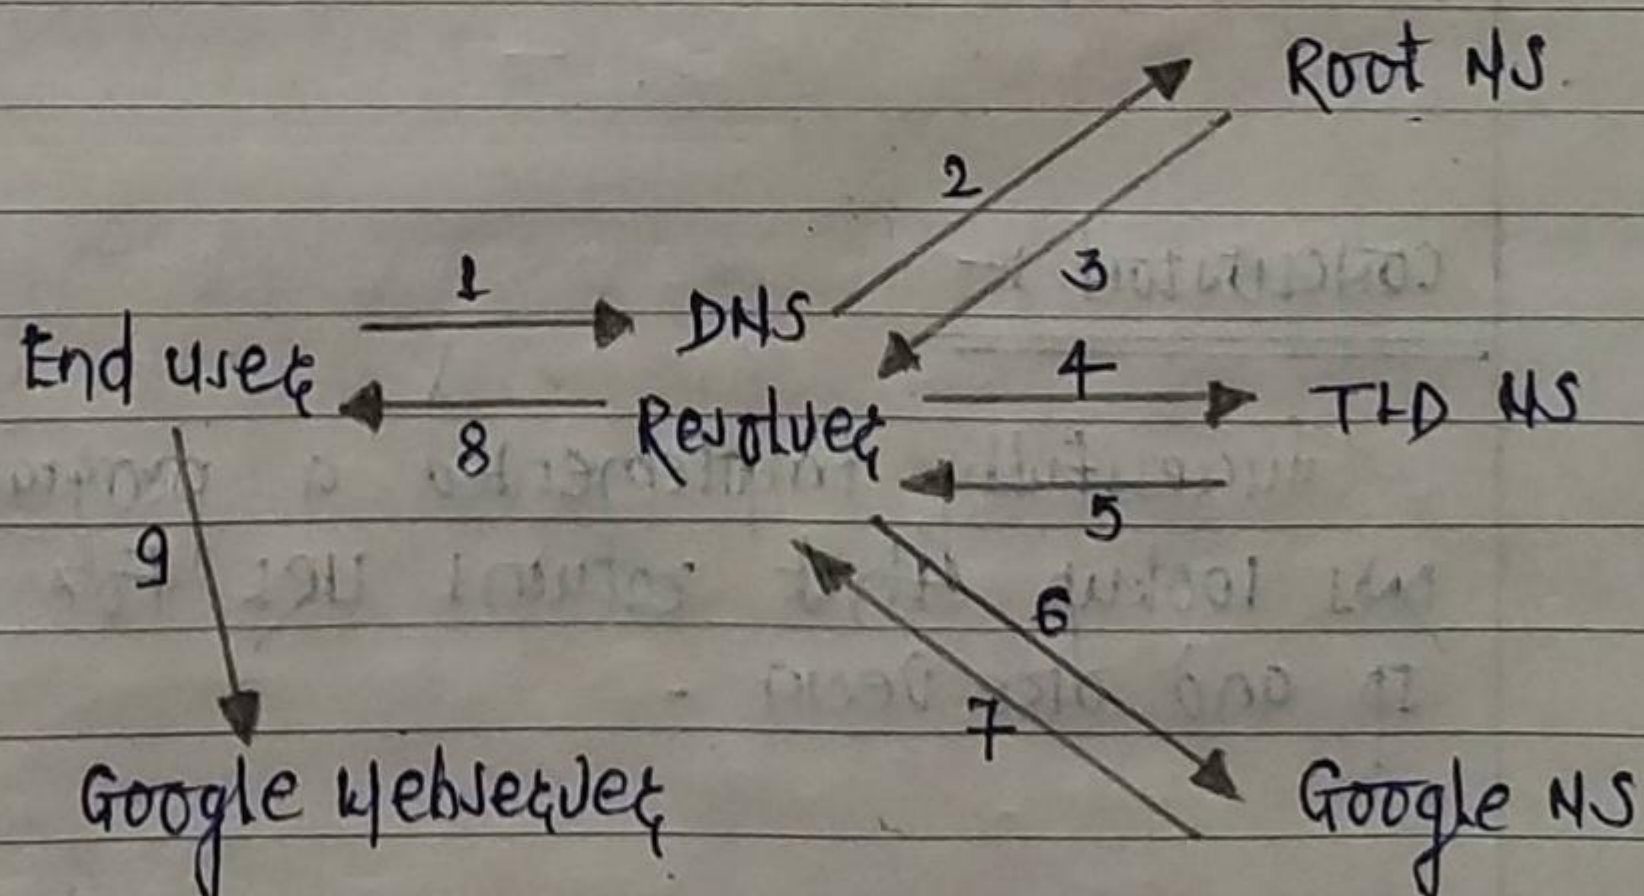 Root NS.
2
3
1
DNS
End user
4
Resolver
TLD NS
8
5
9
6
7
Google Webserver
Google NS